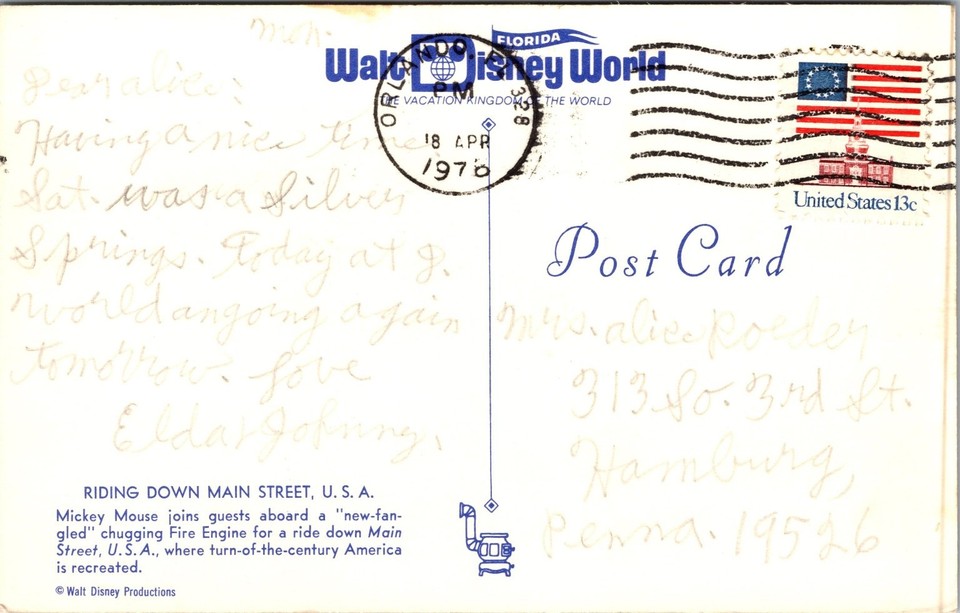 Mon.
Dear alice:
Having a nice time
Sat. was a Silver
Springs. Today at D.
World angoing again
tomorrow. Love
Elda & Johnny.
FLORIDA
Walt Disney World
THE VACATION KINGDOM OF THE WORLD
ORLANDO, FL 328
PM
18 APR
1976
United States 13c
Post Card
Mrs. alice Roeder
313 So. 3rd St.
Hamburg,
Penna. 19526
RIDING DOWN MAIN STREET, U.S.A.
Mickey Mouse joins guests aboard a "new-fan-
gled" chugging Fire Engine for a ride down Main
Street, U.S.A., where turn-of-the-century America
is recreated.
© Walt Disney Productions